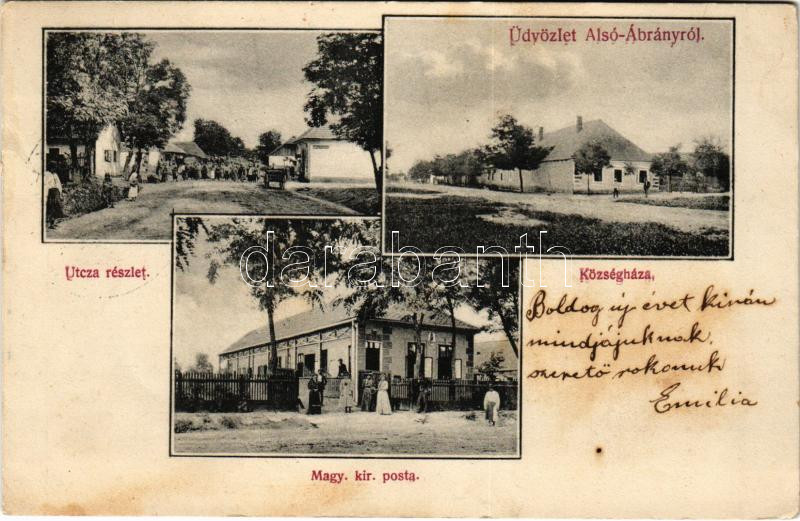 Üdvözlet Alsó-Ábrányról.
Utcza részlet.
Községháza.
darabanth
Boldog új évet kiván
mindjájuknak
szerető rokonuk
Emilia
Magy. kir. posta.